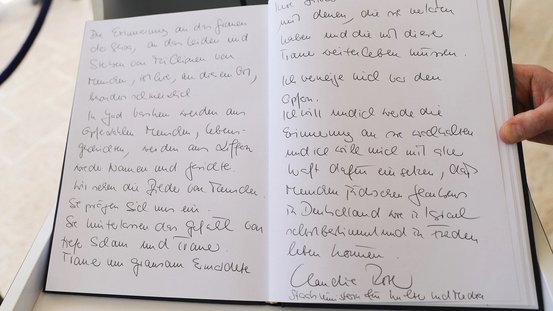 Die Erinnerung an das Grauen
der Shoa, an das Leiden und
Sterben von Millionen von
Menschen, ist hier, an diesem Ort,
besonders schmerzlich
In Yad Vashem werden aus
Opferzahlen Menschen, Lebens-
geschichten, werden aus Ziffern
wieder Namen und Gesichter.
Wir sehen die Bilder von Menschen.
Sie prägen sich uns ein.
Sie hinterlassen das Gefühl von
tiefer Scham und Trauer.
Trauer um grausam Ermordete
mit denen, die sie verloren
haben und die mit dieser
Trauer weiterleben müssen.
Ich verneige mich vor den
Opfern.
Ich will und ich werde die
Erinnerung an sie wachhalten
und ich will mich mit aller
Kraft dafür einsetzen, daß
Menschen jüdischen Glaubens
in Deutschland wie in Israel
selbstbestimmt und in Frieden
leben können.
Claudia Roth
Staatsministerin für Kultur und Medien